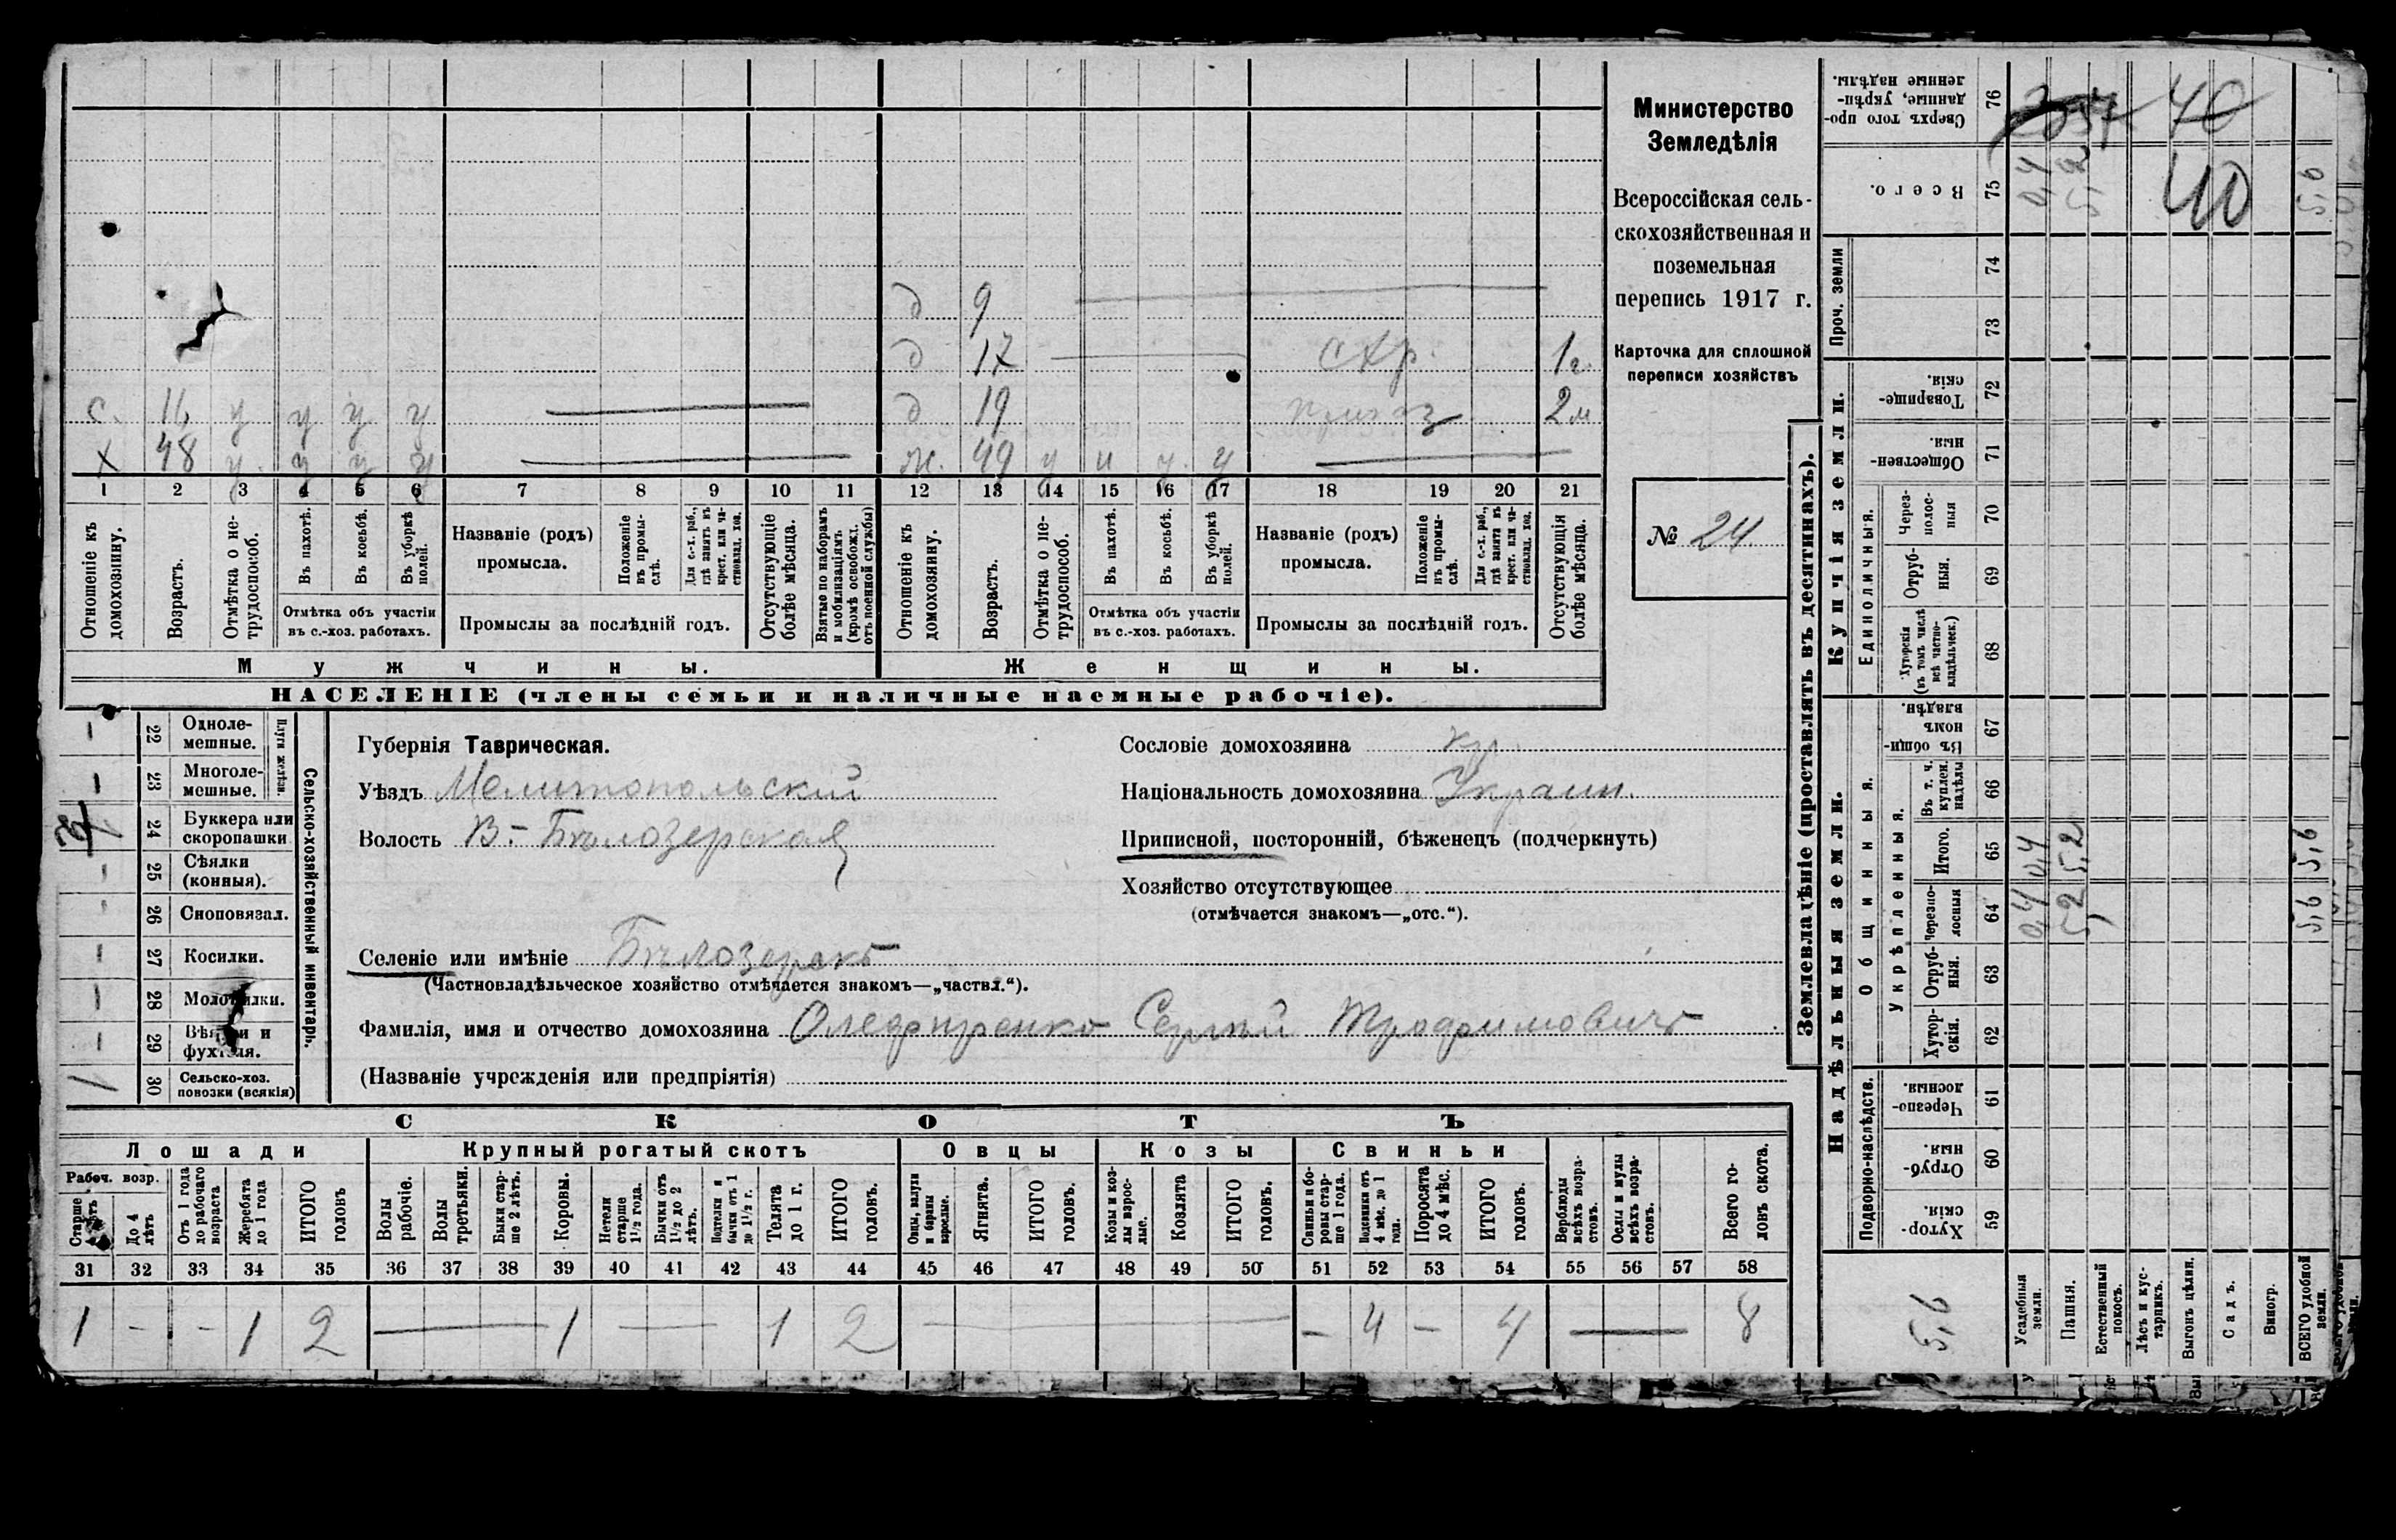 Министерство
Земледѣлія
Всероссійская сель-
скохозяйственная и
поземельная
перепись 1917 г.
Карточка для сплошной
переписи хозяйствъ
№ 24
д 9
д 17 схр. 1 г.
с. 16 у у у у д 19 2 м
х 48 у. у у у ж. 49 у и у. у
1 2 3 4 5 6 7 8 9 10 11 12 13 14 15 16 17 18 19 20 21
Отношеніе къ домохозяину.
Возрастъ.
Отмѣтка о не-трудоспособ.
Въ пахотѣ.
Въ косьбѣ.
Въ уборкѣ полей.
Отмѣтка объ участіи
въ с.-хоз. работахъ.
Названіе (родъ)
промысла.
Положеніе въ промы-слѣ.
Для с.-х. раб., гдѣ занятъ въ крест. или ча-стновлад. хоз.
Промыслы за послѣдній годъ.
Отсутствующіе болѣе мѣсяца.
Взятые по наборамъ и мобилизаціямъ (кромѣ освобожд. отъ военной службы)
Отношеніе къ домохозяину.
Возрастъ.
Отмѣтка о не-трудоспособ.
Въ пахотѣ.
Въ косьбѣ.
Въ уборкѣ полей.
Отмѣтка объ участіи
въ с.-хоз. работахъ.
Названіе (родъ)
промысла.
Положеніе въ промы-слѣ.
Для с.-х. раб., гдѣ занята въ крест. или ча-стновлад. хоз.
Промыслы за послѣдній годъ.
Отсутствующія болѣе мѣсяца.
Мужчины. Женщины.
НАСЕЛЕНІЕ (члены семьи и наличные наемные рабочіе).
Сельско-хозяйственный инвентарь.
Плуги желѣзн.
— 22 Одноле-мешные.
— 23 Многоле-мешные.
24 Буккера или скоропашки
— 25 Сѣялки (конныя).
26 Сноповязал.
— 27 Косилки.
— 28 Молотилки.
— 29 Вѣялки и фухтеля.
1 30 Сельско-хоз. повозки (всякія)
Губернія Таврическая.
Уѣздъ Мелитопольскій
Волость В-Бѣлозерская
Сословіе домохозяина кр.
Національность домохозяина Украин.
Приписной, посторонній, бѣженецъ (подчеркнуть)
Хозяйство отсутствующее
(отмѣчается знакомъ—„отс.“).
Селеніе или имѣніе Бѣлозерскъ
(Частновладѣльческое хозяйство отмѣчается знакомъ—„частвл.“).
Фамилія, имя и отчество домохозяина Олефиренко Сергѣй Трофимовичъ
(Названіе учрежденія или предпріятія)
СКОТЪ
Лошади Крупный рогатый скотъ Овцы Козы Свиньи
Рабоч. возр.
Старше 4 лѣтъ
До 4 лѣтъ
Отъ 1 года до рабочаго возраста
Жеребята до 1 года
ИТОГО головъ
Волы рабочіе.
Волы третьяки.
Быки стар-ше 2 лѣтъ.
Коровы.
Нетели старше 1 1/2 года.
Бычки отъ 1 1/2 до 2 лѣтъ.
Подтелки и бычки отъ 1 до 1 1/2 г.
Телята до 1 г.
ИТОГО головъ.
Овцы, валухи и бараны взрослые.
Ягнята.
ИТОГО головъ.
Козы и коз-лы взрос-лые.
Козлята
ИТОГО головъ.
Свиньи и бо-ровы стар-ше 1 года.
Подсвинки отъ 4 мѣс. до 1 года.
Поросята до 4 мѣс.
ИТОГО головъ.
Верблюды всѣхъ возра-стовъ.
Ослы и мулы всѣхъ возра-стовъ.
Всего го-ловъ скота.
31 32 33 34 35 36 37 38 39 40 41 42 43 44 45 46 47 48 49 50 51 52 53 54 55 56 57 58
1 - - 1 2 — 1 — 1 2 — — 4 — 4 — 8
Землевладѣніе (проставлять въ десятинахъ).
Надѣльныя земли.
Купчія земли.
Проч. земли
Подворно-наслѣдств.
Общинныя.
Укрѣпленныя.
Единоличныя.
Хутор-скія. 59
Отруб-ныя. 60
Черезпо-лосныя. 61
Хутор-скія. 62
Отруб-ныя. 63
Черезпо-лосныя 64
Итого. 65
Въ т. ч. куплен. надѣлы 66
Въ общи-номъ владѣн. 67
Хуторскія (въ томъ числѣ всѣ частно-владѣльческ.) 68
Отруб-ныя. 69
Через-полос-ныя 70
Обществен-ныя. 71
Товарище-скія. 72
73
74
Всего. 75
Сверхъ того про-данные, укрѣп-ленные надѣлы. 76
5,6
Усадебныя земли. 0,4 0,4 0,4
Пашня. 5,2 5,2 5,2
Естественный покосъ.
Лѣсъ и кус-тарникъ.
Выгонъ цѣлин. 40 40
Садъ.
Виногр.
ВСЕГО удобной земли. 5,6 5,6 5,6